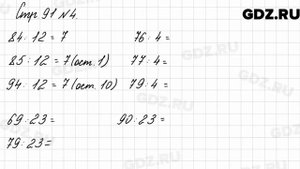 GDZ.RU
Стр 91 №4.
84 : 12 = 7 76 : 4 =
85 : 12 = 7 (ост. 1) 77 : 4 =
94 : 12 = 7 (ост. 10) 79 : 4 =
69 : 23 = 90 : 23 =
79 : 23 =